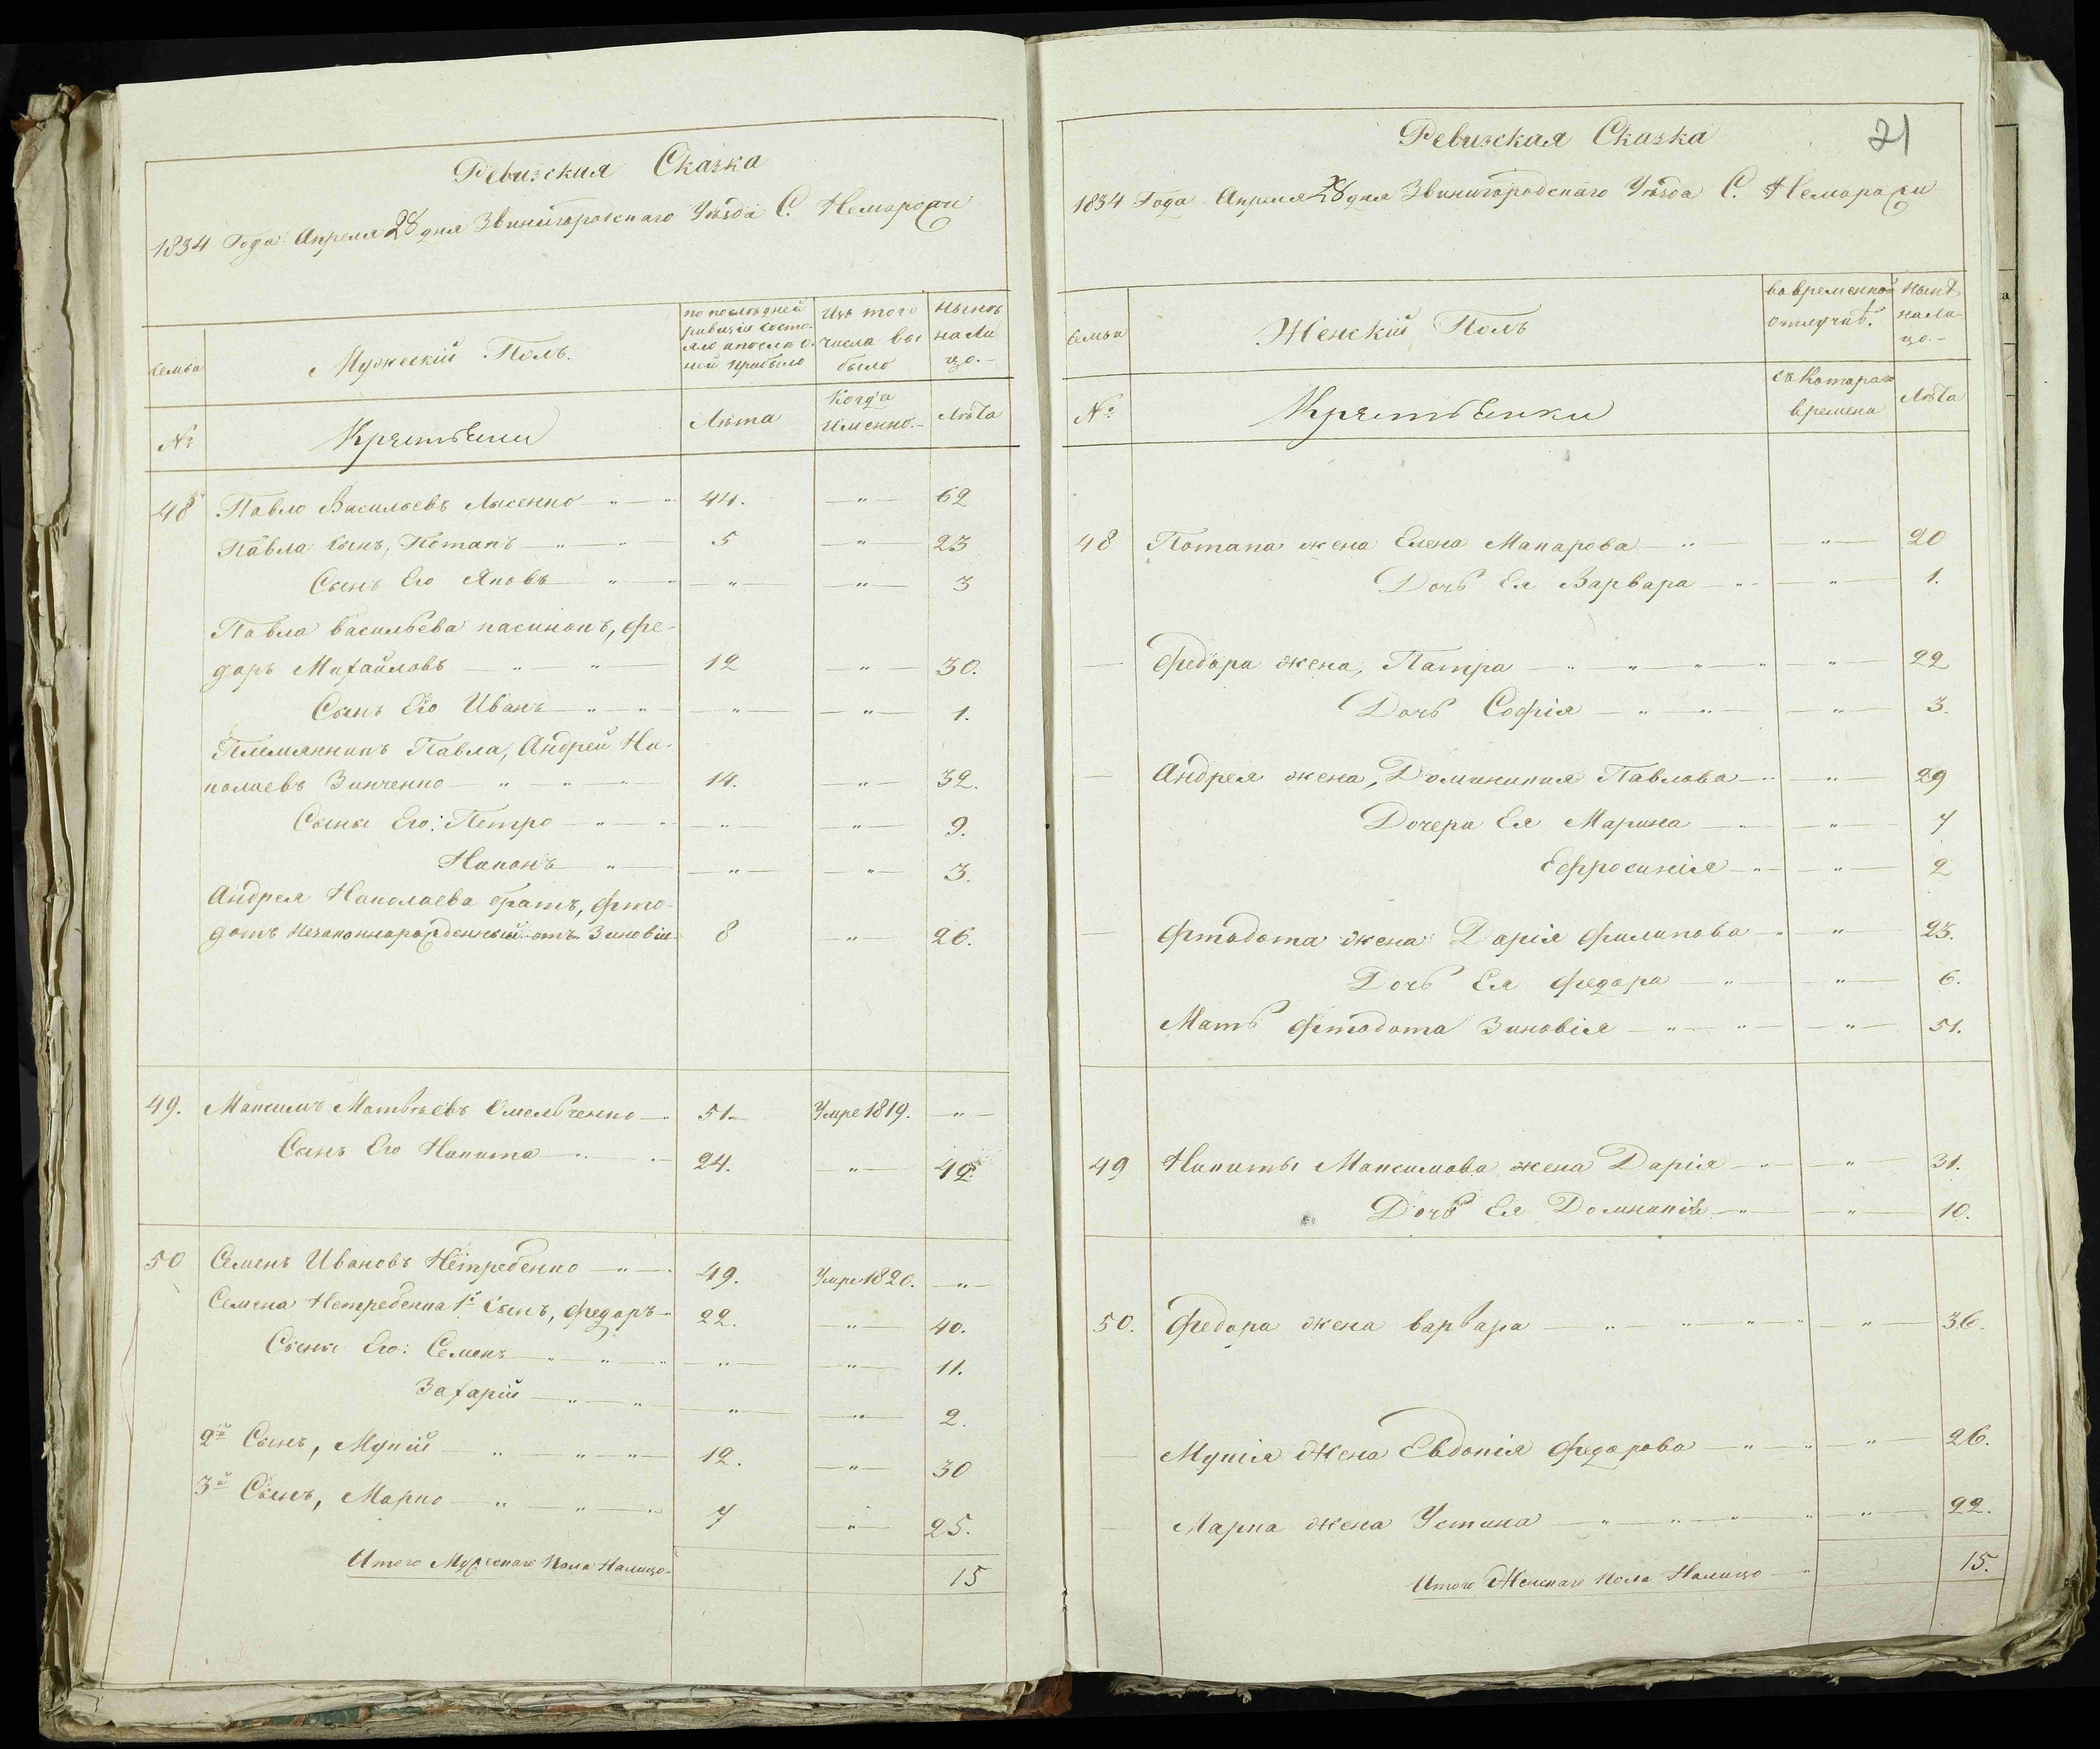 Ревизская Сказка
1834 Года Апреля 28 дня Звинигородскаго Уѣзда С. Неморожи
Семьи
Мужескій Полъ.
по послѣдней
ревизіи состо-
яло и послѣ о-
ной прибыло
Изъ того
числа вы
было
Нынѣ
на Ли
цо.-
№
Крестьяни
Лѣта
Когда
Именно.-
Лѣта
48 Павло Васильевъ Лысенко — " — " 44. — " — 62
Павла сынъ, Потапъ — " — " 5 — " — 23
Сынъ Его Яковъ — " — — " — — " — 3
Павла Васильева пасинокъ, Фе-
доръ Михайловъ — " — " — 12 — " — 30.
Сынъ Его Иванъ — " — " — " — — " — 1.
Племянникъ Павла, Андрей Ни-
колаевъ Зинченко — " — " — " 14. — " — 32.
Сыны Его: Петро — " — " — " — — " — 9.
Никонъ — " — — " — — " — 3.
Андрея Николаева братъ, Фтო-
дотъ Незаконнорожденный отъ Зиновіи 8 — " — 26.
49. Максимъ Матвѣевъ Омельченко — 51. Умре 1819. — " —
Сынъ Его Никита — " — 24. — " — 42.
50 Семенъ Ивановъ Нетребенко — " — 49. Умре 1820. — " —
Семена Нетребенка 1й Сынъ, Федоръ — 22. — " — 40.
Сыны Его: Семенъ — " — " — " — — " — 11.
Захарій — " — " — " — — " — 2.
2й Сынъ, Мукій — " — " — " — 12. — " — 30
3й Сынъ, Марко — " — " — " 7 — " — 25.
Итого Мужескаго Пола Налицо - 15
21
Ревизская Сказка
1834 Года Апреля 28 дня Звинигородскаго Уѣзда С. Неморожи
Семьи
Женскій Полъ
Во временной
отлучкѣ.
Нынѣ
на Ли-
цо.-
№
Крестьянки
Съ Котораго
времена
Лѣта
48 Потапа жена Елена Макарова — " — — " — 20
Дочь Ея Варвара — " — — " — 1.
— Федора жена, Патра — " — " — " — " — 22
Дочь Софія — " — " — — " — 3.
— Андрея жена, Доминикия Павлова — " — " — 29
Дочери Ея Марина — " — — " — 7
Ефросинія — " — — " — 2
— Фтодота жена Дарія Филипова — " — " — 23.
Дочь Ея Федора — " — — " — 6.
— Мать Фтодота Зиновія — " — " — — " — 51.
49 Никиты Максимова жена Дарія — " — — " — 31.
Дочь Ея Домникія — " — — " — 10.
50. Федора жена Варвара — " — " — " — " — " — 36.
— Мукія Жена Евдокія Федорова — " — " — " — 26.
— Марка жена Устина — " — " — " — " — " — 22.
Итого Женскаго Пола Налицо — " 15.